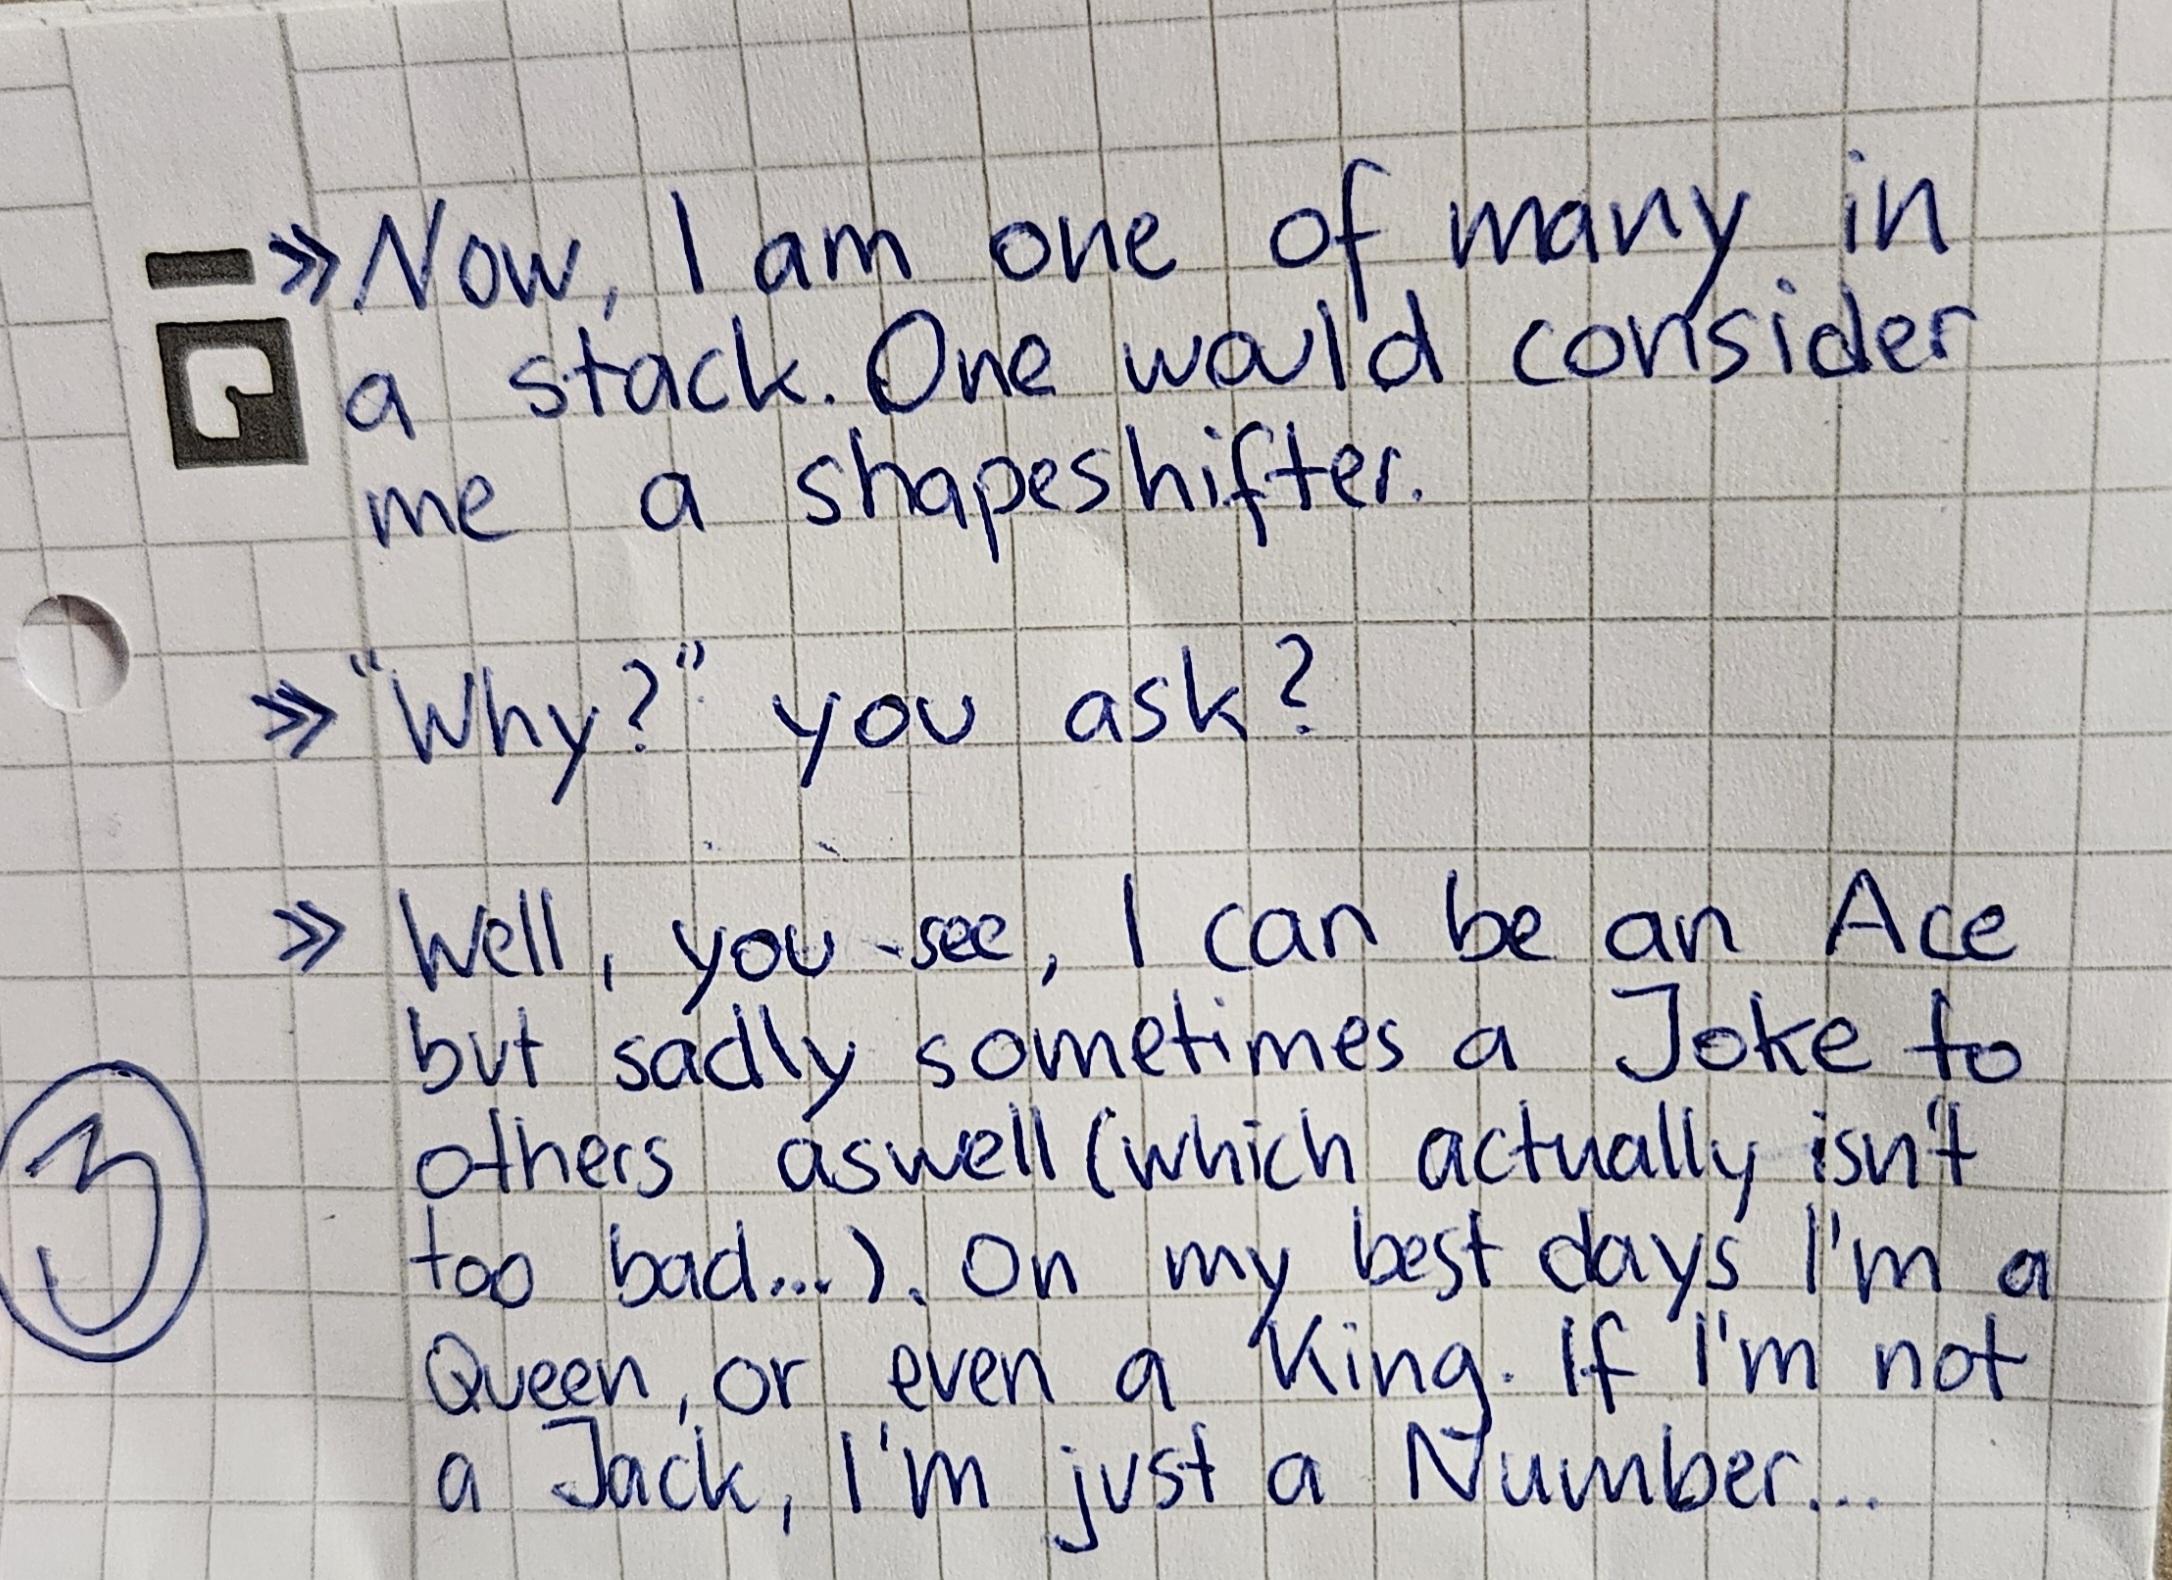 » Now, I am one of many in
a stack. One would consider
me a shapeshifter.
» "Why?" you ask?
» Well, you see, I can be an Ace
but sadly sometimes a Joke to
others aswell (which actually isn't
too bad...). On my best days I'm a
Queen, or even a King. If I'm not
a Jack, I'm just a Number...
3